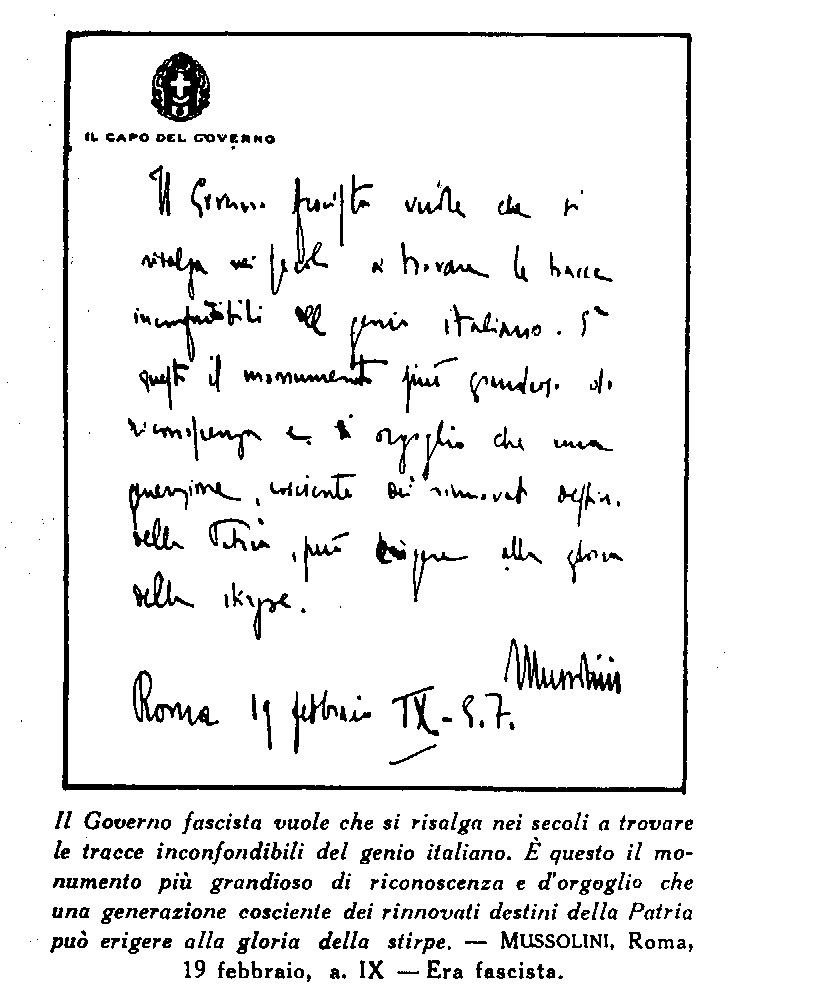 IL CAPO DEL GOVERNO
Il Governo fascista vuole che si
risalga nei secoli a trovare le tracce
inconfondibili del genio italiano. È
questo il monumento più grandioso di
riconoscenza e di orgoglio che una
generazione, cosciente dei rinnovati destini
della Patria, può erigere alla gloria
della stirpe.
Mussolini
Roma 19 febbraio IX - E.F.
Il Governo fascista vuole che si risalga nei secoli a trovare
le tracce inconfondibili del genio italiano. È questo il mo-
numento più grandioso di riconoscenza e d'orgoglio che
una generazione cosciente dei rinnovati destini della Patria
può erigere alla gloria della stirpe. — MUSSOLINI, Roma,
19 febbraio, a. IX — Era fascista.